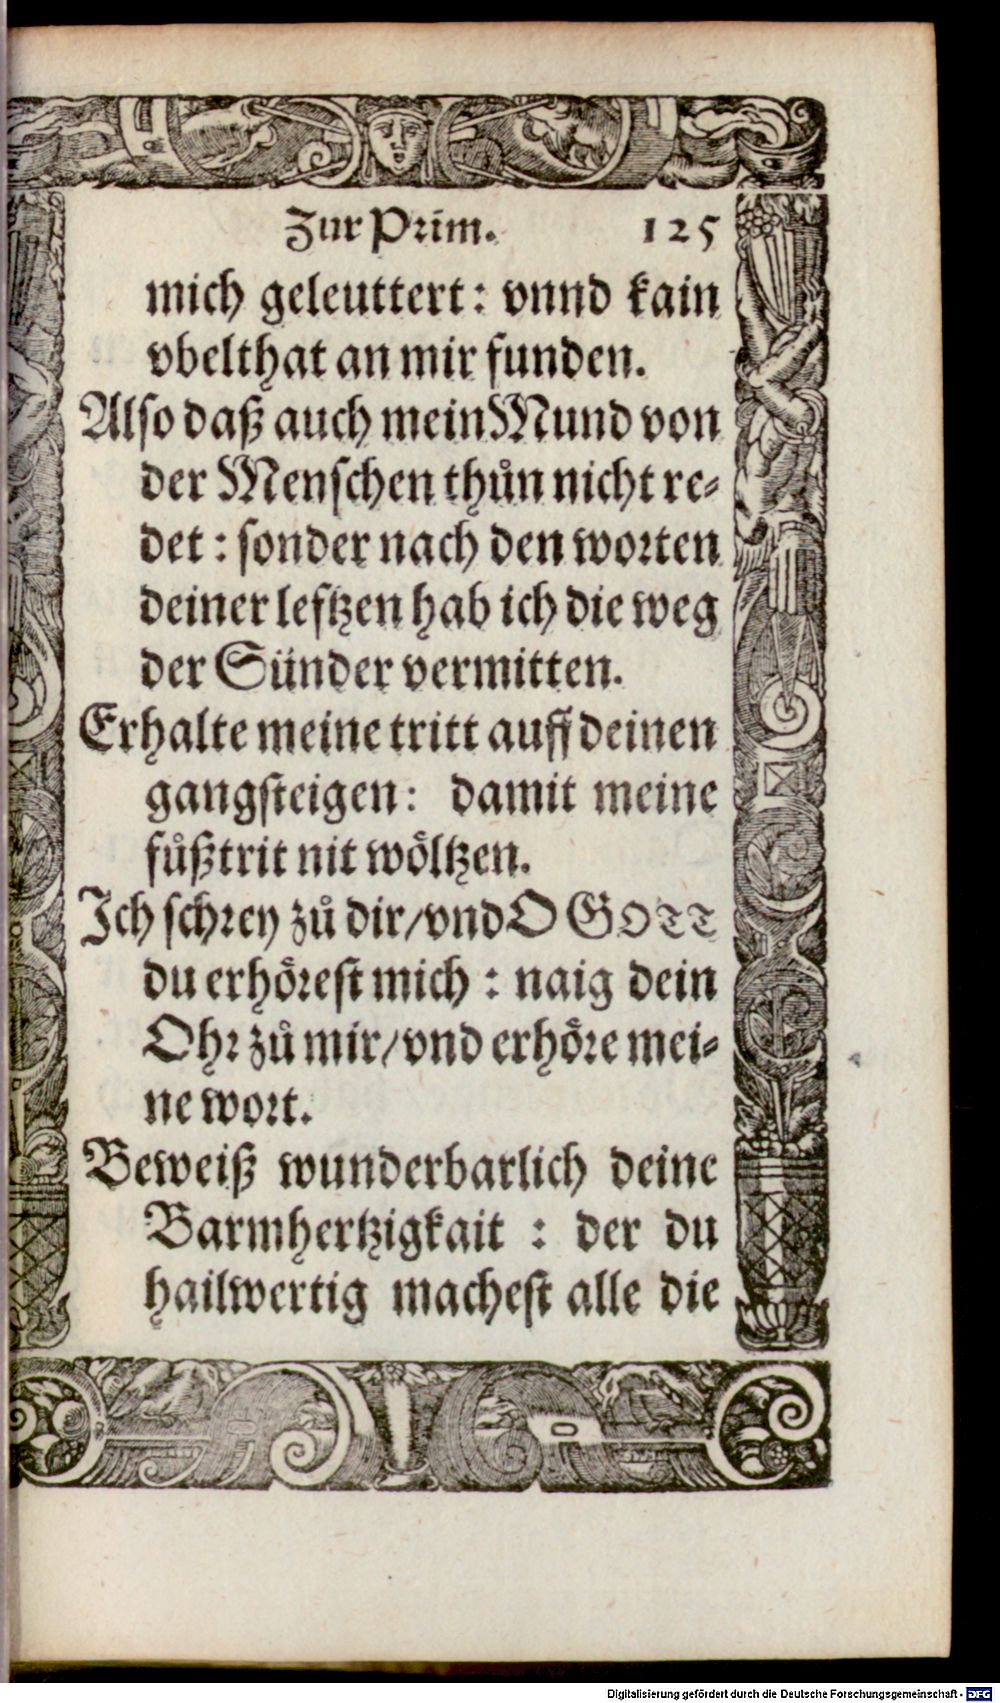 Zur Prim. 125
mich geleuttert: vnnd kain
vbelthat an mir funden.
Also daß auch mein Mund von
der Menschen thůn nicht re⸗
det: sonder nach den worten
deiner lefftzen hab ich die weg
der Sünder vermitten.
Erhalte meine tritt auff deinen
gangsteigen: damit meine
fůßtrit nit wöltzen.
Ich schrey zů dir/ vnd O GOTT
du erhörest mich: naig dein
Ohr zů mir/ vnd erhöre mei⸗
ne wort.
Beweiß wunderbarlich deine
Barmhertzigkait: der du
hailwertig machest alle die
Digitalisierung gefördert durch die Deutsche Forschungsgemeinschaft - DFG